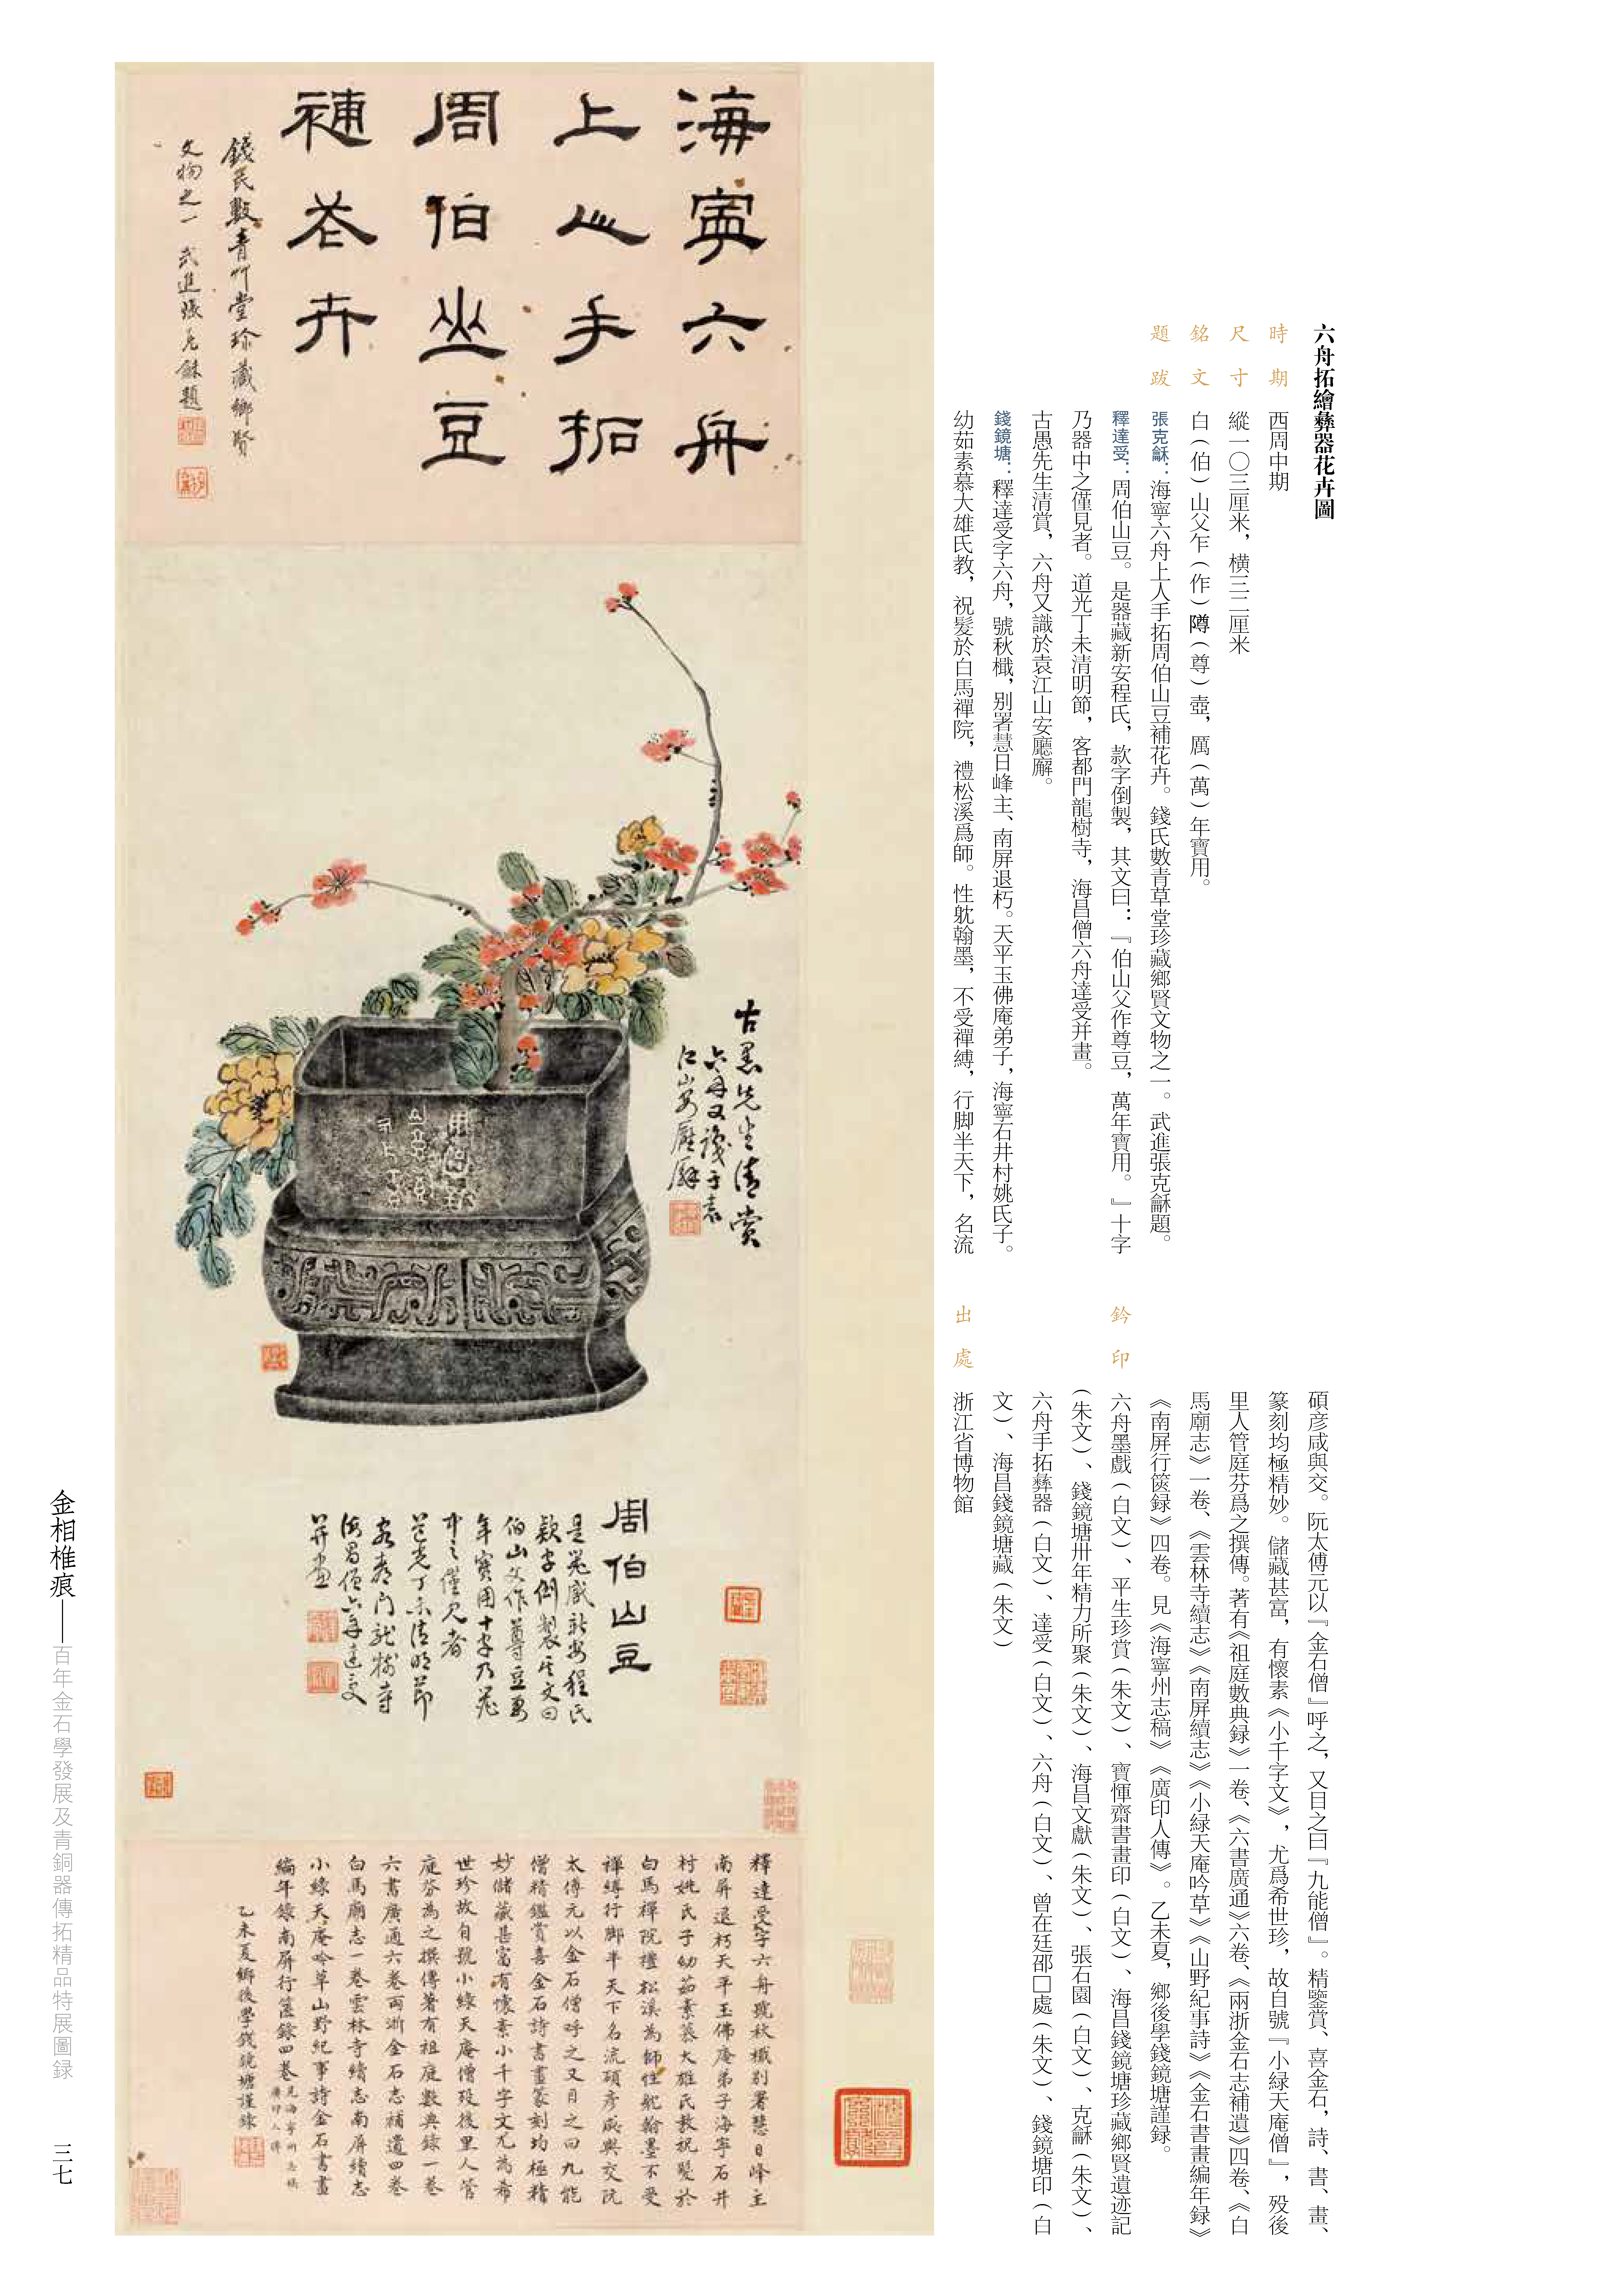 六舟拓繪彝器花卉圖
時期 西周中期
尺寸 縱一〇三厘米，橫三二厘米
銘文 白（伯）山父乍（作）䵼（尊）壺，厲（萬）年寶用。
題跋 張克龢：海寧六舟上人手拓周伯山豆補花卉。錢氏數青草堂珍藏鄉賢文物之一。武進張克龢題。
釋達受：周伯山豆。是器藏新安程氏，款字倒製，其文曰：『伯山父作尊豆，萬年寶用。』十字
乃器中之僅見者。道光丁未清明節，客都門龍樹寺，海昌僧六舟達受并畫。
古愚先生清賞，六舟又識於袁江山安廳廨。
錢鏡塘：釋達受字六舟，號秋檝，別署慧日峰主、南屏退朽。天平玉佛庵弟子，海寧石井村姚氏子。
幼茹素慕大雄氏教，祝髮於白馬禪院，禮松溪爲師。性躭翰墨，不受禪縛，行脚半天下，名流
碩彥咸與交。阮太傅元以『金石僧』呼之，又目之曰『九能僧』。精鑒賞、喜金石，詩、書、畫、
篆刻均極精妙。儲藏甚富，有懷素《小千字文》，尤爲希世珍，故自號『小緑天庵僧』，殁後
里人管庭芬爲之撰傳。著有《祖庭數典録》一卷、《六書廣通》六卷、《兩浙金石志補遺》四卷、《白
馬廟志》一卷、《雲林寺續志》《南屏續志》《小緑天庵吟草》《山野紀事詩》《金石書畫編年録》
《南屏行篋録》四卷。見《海寧州志稿》《廣印人傳》。乙未夏，鄉後學錢鏡塘謹録。
鈐印 六舟墨戲（白文）、平生珍賞（朱文）、寶惲齋書畫印（白文）、海昌錢鏡塘珍藏鄉賢遺迹記
（朱文）、錢鏡塘卅年精力所聚（朱文）、海昌文獻（朱文）、張石園（白文）、克龢（朱文）、
六舟手拓彝器（白文）、達受（白文）、六舟（白文）、曾在廷邵□處（朱文）、錢鏡塘印（白
文）、海昌錢鏡塘藏（朱文）
出處 浙江省博物館
海寧六舟
上人手拓
周伯山豆
補花卉
錢氏數青艸堂珍藏鄉賢
文物之一 武進張克龢題
古愚先生清賞
六舟又識于袁
江山安廳廨
周伯山豆
是器藏新安程氏
款字倒製其文曰
伯山父作尊豆萬
年寶用十字乃器
中之僅見者
道光丁未清明節
客都門龍樹寺
海昌僧六舟達受
并畫
釋達受字六舟號秋檝別署慧日峰主
南屏退朽天平玉佛庵弟子海寧石井
村姚氏子幼茹素慕大雄氏教祝髮於
白馬禪院禮松溪為師性躭翰墨不受
禪縛行脚半天下名流碩彥咸與交阮
太傅元以金石僧呼之又目之曰九能
僧精鑑賞喜金石詩書畫篆刻均極精
妙儲藏甚富有懷素小千字文尤為希
世珍故自號小綠天庵僧歿後里人管
庭芬為之撰傳著有祖庭數典錄一卷
六書廣通六卷兩浙金石志補遺四卷
白馬廟志一卷雲林寺續志南屏續志
小綠天庵吟草山野紀事詩金石書畫
編年錄南屏行篋錄四卷見海寧州志稿廣印人傳
乙未夏鄉後學錢鏡塘謹錄
金相椎痕——百年金石學發展及青銅器傳拓精品特展圖録
三七